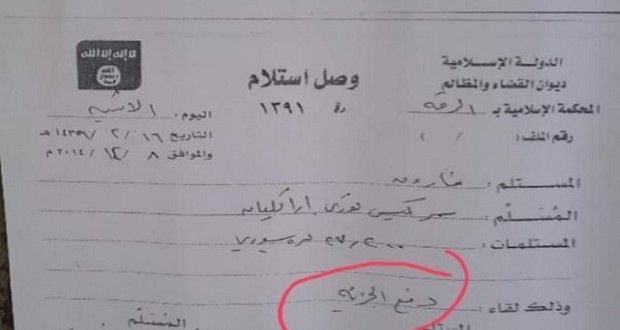 الدولة الإسلامية
ديوان القضاء والمظالم
المحكمة الإسلامية بـ الرقة
رقم الملف: ( / )
لا إله إلا الله
الله
رسول
محمد
وصل استلام
رقم ١٣٩١
اليوم: الاثنين
التاريخ ١٦ / ٢ / ١٤٣٦ هـ
والموافق ٨ / ١٢ / ٢٠١٤ م
المستلم: فاروق
المُسَلِّم: سركيس فوزي اراكليان
المستلمات: ٢٧,٢٠٠ ليرة سوري
وذلك لقاء: دفع الجزية
المُسَلِّم
المستلم